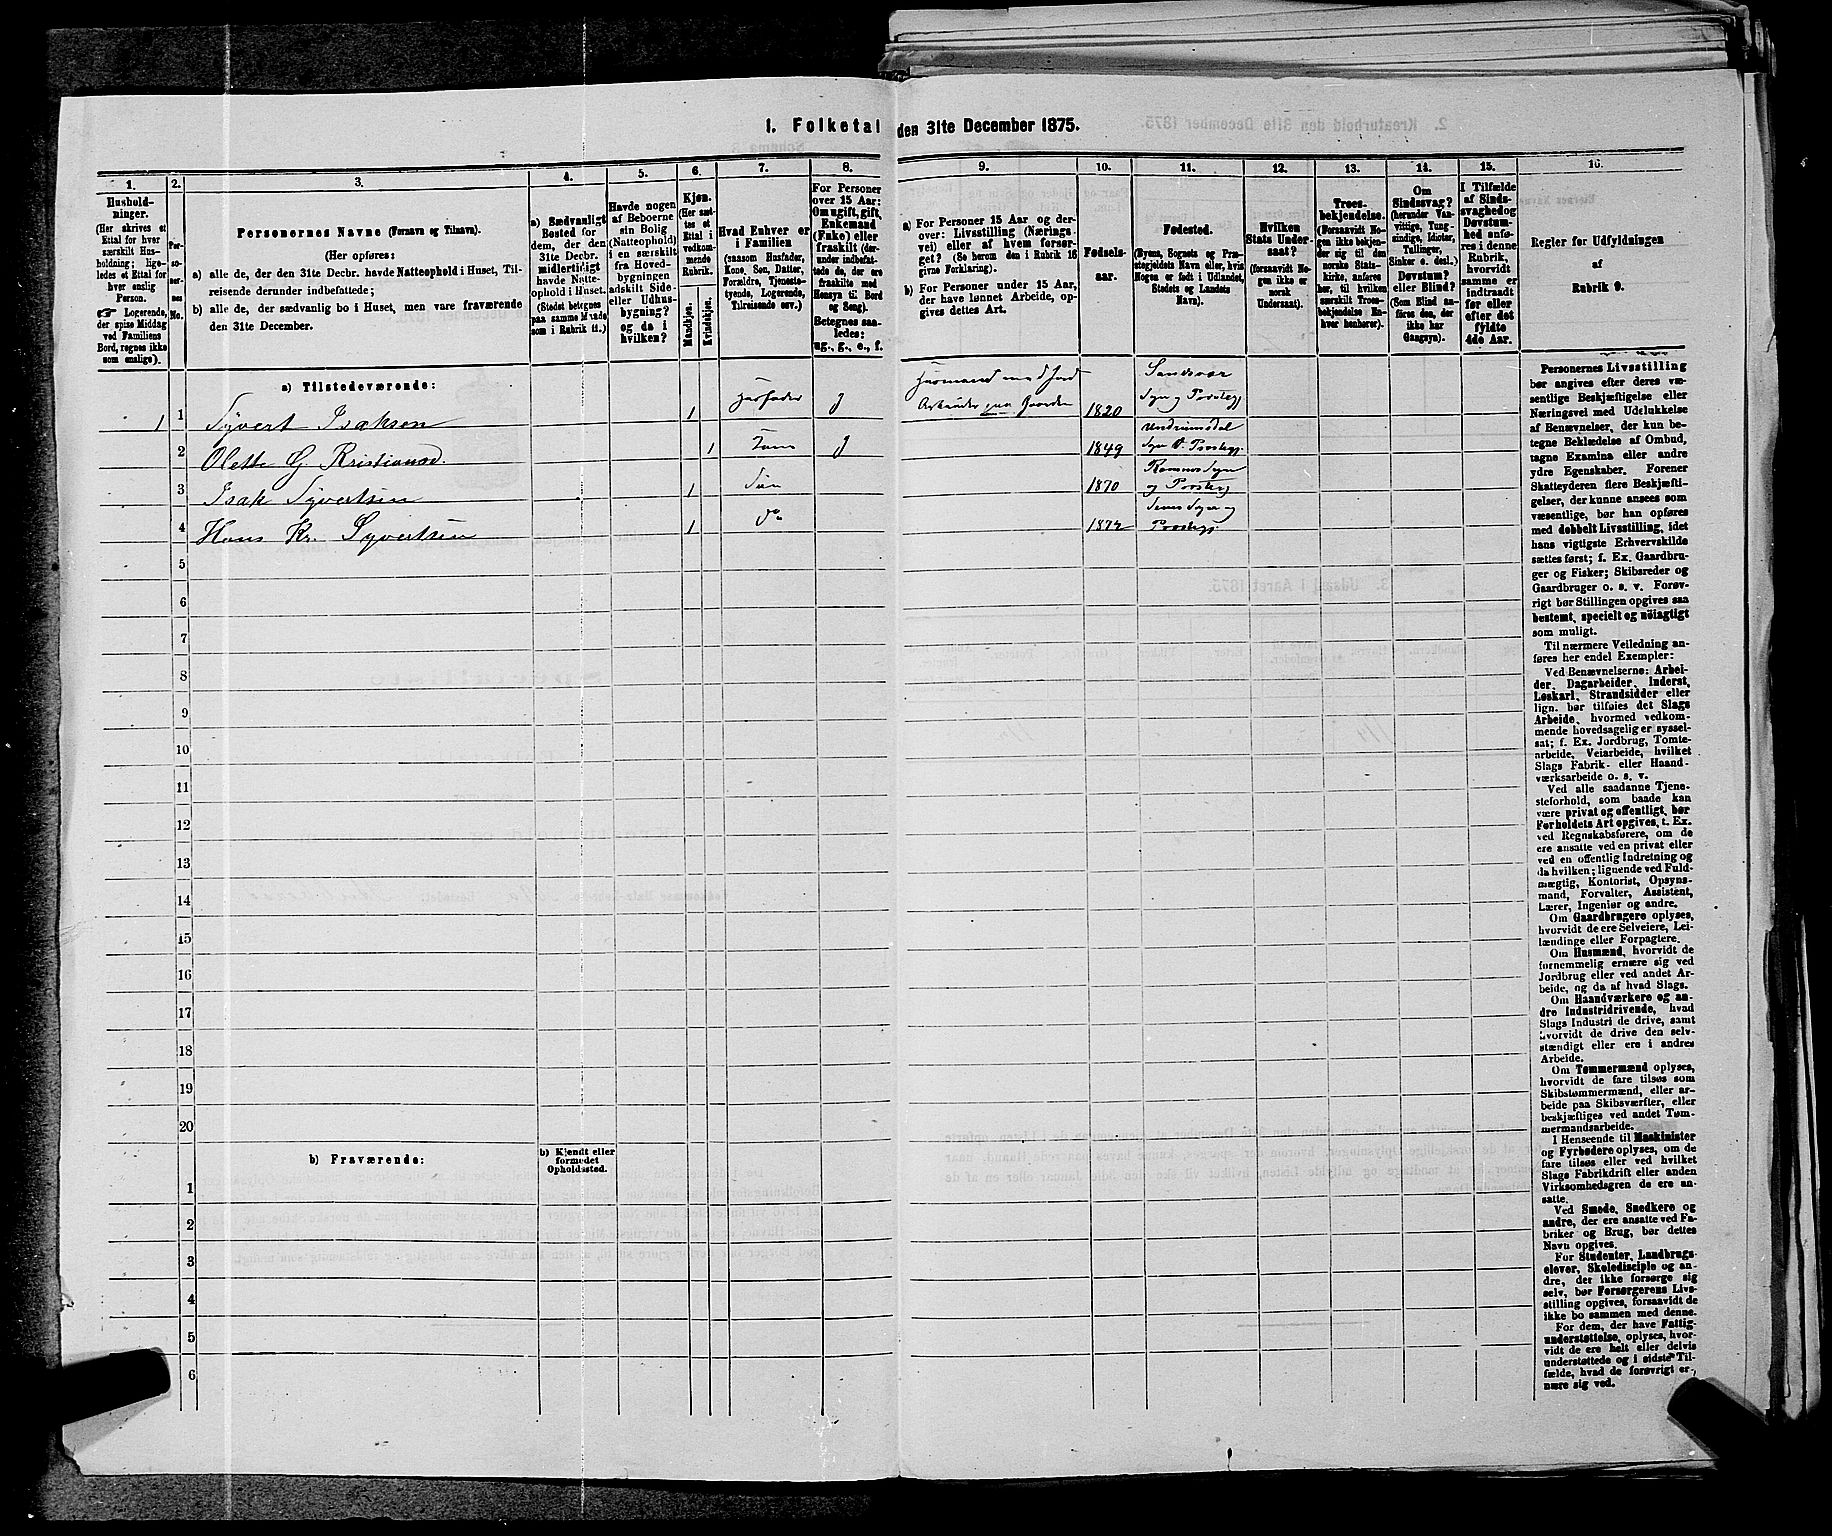 1. Folketal den 31te December 1875.
1.
Hushold-
ninger.
(Her skrives et
Ettal for hver
særskilt Hus-
holdning; lige-
ledes et Ettal for
hver enslig
Person.
☞ Logerende,
der spise Middag
ved Familiens
Bord, regnes ikke
som enslige).
2.
Per-
so-
ner-
nes
No.
3.
Personernes Navne (Fornavn og Tilnavn).
(Her opføres:
a) alle de, der den 31te Decbr. havde Natteophold i Huset, Til-
reisende derunder indbefattede;
b) alle de, der sædvanlig bo i Huset, men vare fraværende
den 31te December.
4.
a) Sædvanligt
Bosted for
dem, der den
31te Decbr.
midlertidigt
havde Natte-
ophold i Huset.
(Stedet betegnes
paa samme Maade
som i Rubrik 11.)
5.
Havde nogen
af Beboerne
sin Bolig
(Natteophold)
i en særskilt
fra Hoved-
bygningen
adskilt Side-
eller Udhus-
bygning?
og da i
hvilken?
6.
Kjøn.
(Her sæt-
tes et
Ettal i
vedkom-
mende
Rubrik.
Mandkjøn.
Kvindekjøn.
7.
Hvad Enhver er
i Familien
(saasom Husfader,
Kone, Søn, Datter,
Forældre, Tjeneste-
tyende, Logerende,
Tilreisende osv.)
8.
For Personer
over 15 Aar:
Om ugift, gift,
Enkemand
(Enke) eller
fraskilt (der-
under indbefat-
tede de, der ere
fraskilte med
Hensyn til Bord
og Seng).
Betegnes saa-
ledes:
ug., g., e., f.
9.
a) For Personer 15 Aar og der-
over: Livsstilling (Nærings-
vei) eller af hvem forsør-
get? (Se herom den i Rubrik 16
givne Forklaring).
b) For Personer under 15 Aar,
der have lønnet Arbeide, op-
gives dettes Art.
10.
Fødsels-
aar.
11.
Fødested.
(Byens, Sognets og Præ-
stegjeldets Navn eller, hvis
Nogen er født i Udlandet,
Stedets og Landets
Navn).
12.
Hvilken
Stats Under-
saat?
(forsaavidt No-
gen ikke er
norsk
Undersaat).
13.
Troes-
bekjendelse.
(Forsaavidt No-
gen ikke bekjen-
der sig til den
norske Stats-
kirke, anføres
her, til hvilken
særskilt Troes-
bekjendelse En-
hver henhører).
14.
Om
Sindssvag?
(herunder Van-
vittige, Tung-
sindige, Idioter,
Tullinger,
Sinker o. desl.)
Døvstum?
eller Blind?
(Som Blind an-
føres den, der
ikke har
Gangsyn).
15.
I Tilfælde
af Sinds-
svaghed og
Døvstum-
hed anfø-
res i denne
Rubrik,
hvorvidt
samme er
indtraadt
før eller
efter det
fyldte
4de Aar.
16.
Regler for Udfyldningen
af
Rubrik 9.
a) Tilstedeværende:
1 1 Syvert Isaksen 1 Husfader g Husmand med Jord
Arbeider paa Gaarden 1820 Sandsvær
Sogn og Præstegj.
2 Olette G. Kristiansd. 1 Kone g 1849 Undrumsdal
Sogn Præstegj.
3 Isak Syvertsen 1 Søn 1870 Ramnes Sogn
og Præstegj.
4 Hans Kr. Syvertsen 1 do 1872 Sems Sogn og
Præstegj.
5
6
7
8
9
10
11
12
13
14
15
16
17
18
19
20
b) Fraværende:
b) Kjendt eller
formodet
Opholdssted.
1
2
3
4
5
6
Personernes Livsstilling
bør angives efter deres væ-
sentlige Beskjæftigelse eller
Næringsvei med Udelukkelse
af Benævnelser, der kun be-
tegne Beklædelse af Ombud,
tagne Examina eller andre
ydre Egenskaber. Forener
Skatteyderen flere Beskjæfti-
gelser, der kunne ansees som
væsentlige, bør han opføres
med dobbelt Livsstilling, idet
hans vigtigste Erhvervskilde
sættes først; f. Ex. Gaardbru-
ger og Fisker; Skibsreder og
Gaardbruger o. s. v. Forøv-
rigt bør Stillingen opgives saa
bestemt, specielt og nøiagtigt
som muligt.
Til nærmere Veiledning an-
føres her endel Exempler:
Ved Benævnelserne: Arbei-
der, Dagarbeider, Inderst,
Løskarl, Strandsidder eller
lign. bør tilføies det Slags
Arbeide, hvormed vedkom-
mende hovedsagelig er syssel-
sat; f. Ex. Jordbrug, Tomte-
arbeide, Veiarbeide, hvilket
Slags Fabrik- eller Haand-
værksarbeide o. s. v.
Ved alle saadanne Tjene-
steforhold, som baade kan
være privat og offentligt, bør
Forholdets Art opgives, t. Ex.
ved Regnskabsførere, om de
ere ansatte ved en privat eller
ved en offentlig Indretning og
da hvilken; lignende ved Fuld-
mægtig, Kontorist, Opsyns-
mand, Forvalter, Assistent,
Lærer, Ingeniør og andre.
Om Gaardbrugere oplyses,
hvorvidt de ere Selveiere, Lei-
lændinge eller Forpagtere.
Om Husmænd, hvorvidt de
fornemmelig ernære sig ved
Jordbrug eller ved andet Ar-
beide, og da af hvad Slags.
Om Haandværkere og an-
dre Industridrivende, hvad
Slags Industri de drive, samt
hvorvidt de drive den selv-
stændigt eller ere i andres
Arbeide.
Om Tømmermænd oplyses,
hvorvidt de fare tilsøs som
Skibstømmermænd, eller ar-
beide paa Skibsværfter, eller
beskjæftiges ved andet Tøm-
mermandsarbeide.
I Henseende til Maskinister
og Fyrbødere oplyses, om de
fare tilsøs eller ved hvilket
Slags Fabrikdrift eller anden
Virksomhedsgren de ere an-
satte.
Ved Smede, Snedkere og
andre, der ere ansatte ved Fa-
briker og Brug, bør dettes
Navn opgives.
For Studenter, Landbrugs-
elever, Skoledisciple og an-
dre, der ikke forsørge sig
selv, bør Forsørgerens Livs-
stilling opgives, forsaavidt de
ikke bo sammen med denne.
For dem, der have Fattig-
understøttelse, oplyses, hvor-
vidt de ere helt eller delvis
understøttede og i sidste Til-
fælde, hvad de forøvrigt er-
nære sig ved.